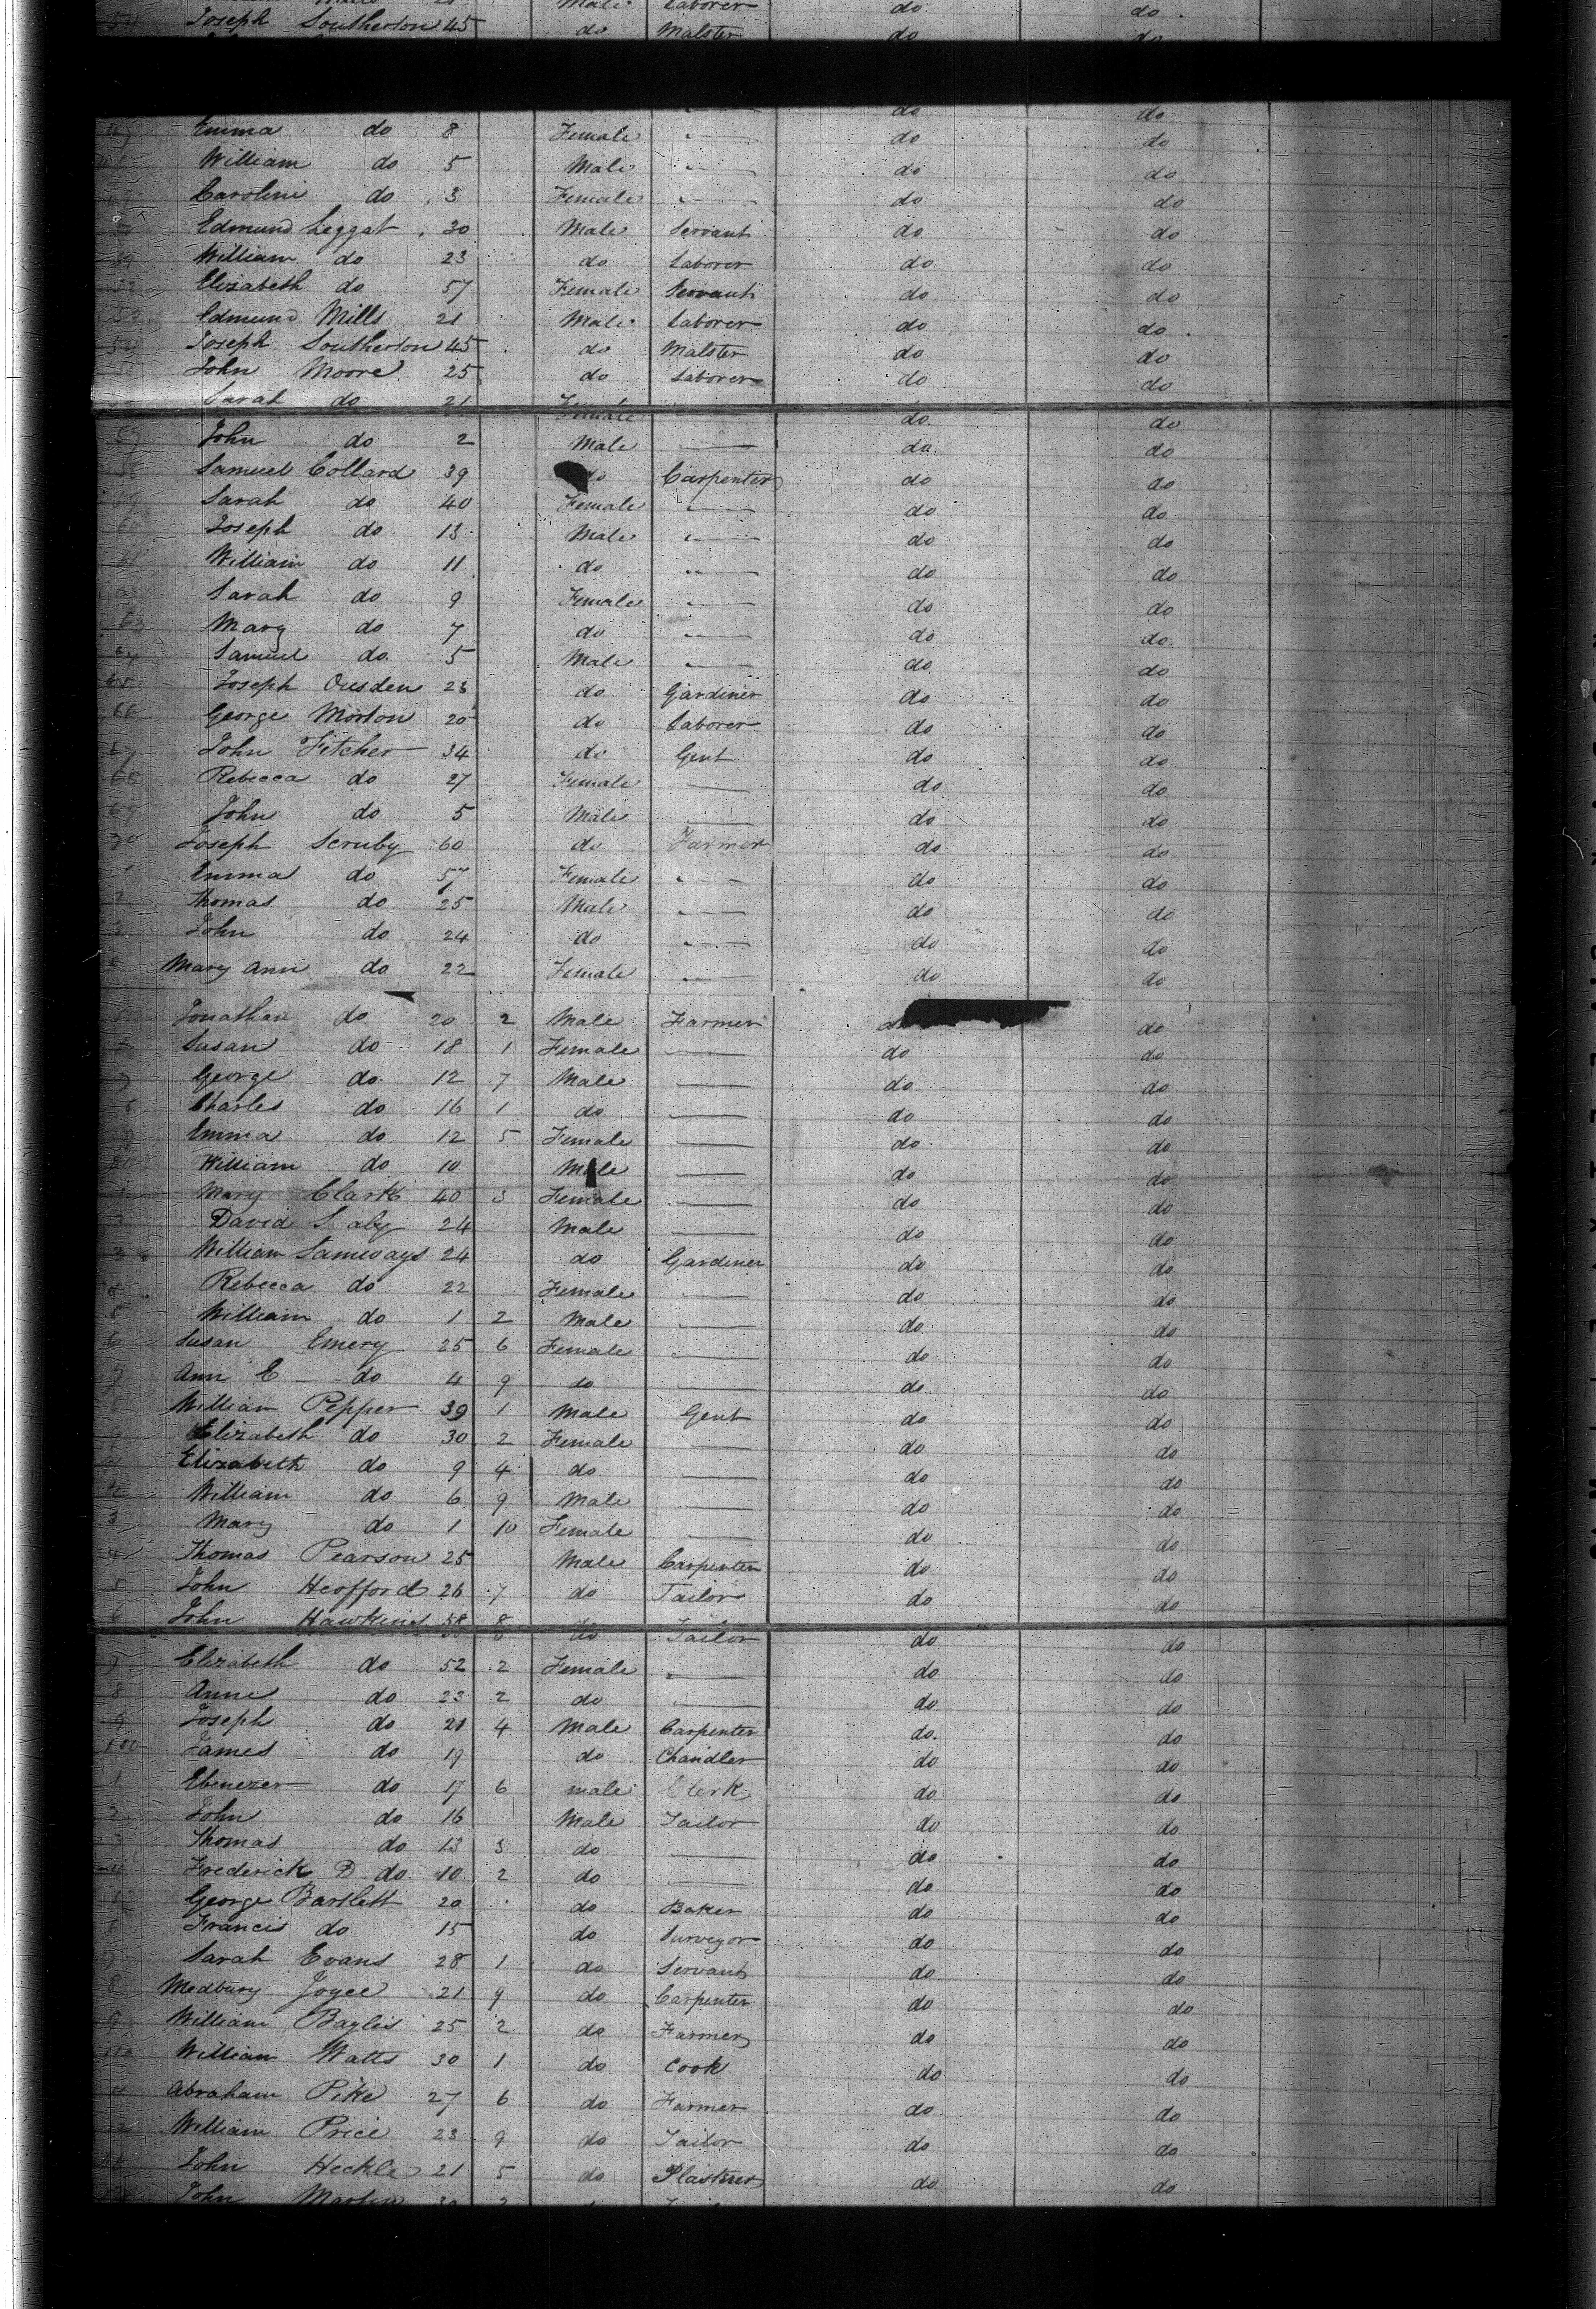 Male Laborer do do
54 Joseph Southerton 45 do Malster do do
do do
47 Emma do 8 Female do do
William do 5 Male do do
49 Caroline do 3 Female do do
Edmund Leggat 30 Male Servant do do
51 William do 23 do Laborer do do
52 Elizabeth do 57 Female Servant do do
53 Edmund Mills 21 Male Laborer do do
54 Joseph Southerton 45 do Malster do do
John Moore 25 do Laborer do do
Sarah do 21 Female do do
57 John do 2 Male do do
58 Samuel Collard 39 do Carpenter do do
59 Sarah do 40 Female do do
60 Joseph do 13 Male do do
61 William do 11 do do do
Sarah do 9 Female do do
63 Mary do 7 do do do
64 Samuel do 5 Male do do
65 Joseph Ousden 23 do Gardiner do do
66 George Morton 20 do Laborer do do
67 John Fitcher 34 do Gent do do
68 Rebecca do 27 Female do do
69 John do 5 Male do do
70 Joseph Scruby 60 do Farmer do do
1 Emma do 57 Female do do
2 Thomas do 25 Male do do
3 John do 24 do do do
Mary Ann do 22 Female do do
Jonathan do 20 2 Male Farmer do do
Susan do 18 1 Female do do
7 George do 12 7 Male do do
8 Charles do 16 1 do do do
9 Emma do 12 5 Female do do
80 William do 10 Male do do
1 Mary Clark 40 3 Female do do
David 24 Male do do
3 William Samways 24 do Gardiner do do
4 Rebecca do 22 Female do do
5 William do 1 2 Male do do
6 Susan Emery 25 6 Female do do
7 Ann E do 4 9 do do do
8 William Pepper 39 1 Male Gent do do
9 Elizabeth do 30 2 Female do do
Elizabeth do 9 4 do do do
2 William do 6 9 Male do do
3 Mary do 1 10 Female do do
4 Thomas Pearson 25 Male Carpenter do do
5 John Heofford 26 7 do Tailor do do
6 John Hawkins 58 8 do Tailor do do
7 Elizabeth do 52 2 Female do do
8 Anne do 23 2 do do do
9 Joseph do 21 4 Male Carpenter do do
100 James do 19 do Chandler do do
1 Ebenezer do 17 6 male Clerk do do
2 John do 16 Male Tailor do do
3 Thomas do 13 3 do do do
4 Frederick D do 10 2 do do do
5 George Bartlett 20 do Baker do do
6 Francis do 15 do Surveyor do do
7 Sarah Evans 28 1 do Servant do do
8 Medbury Joyce 21 9 do Carpenter do do
9 William Baylis 25 2 do Farmer do do
110 William Watts 30 1 do Cook do do
11 Abraham Pike 27 6 do Farmer do do
12 William Price 23 9 do Tailor do do
John Heckle 21 5 do Plasterer do do
John Martin 30 2